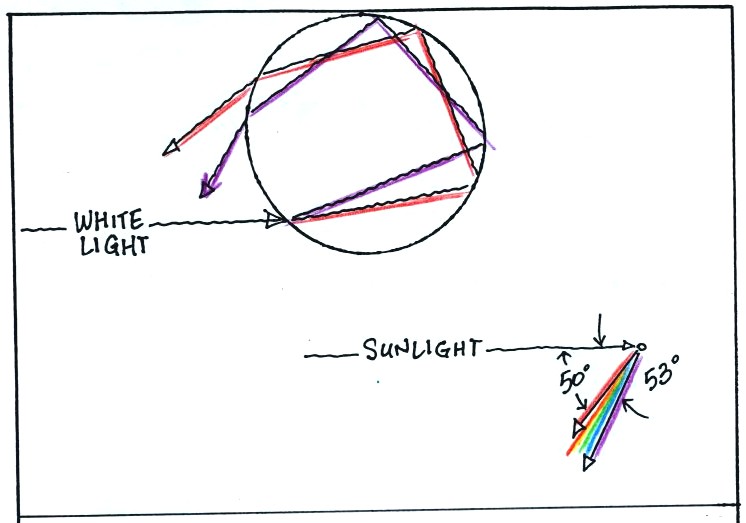 WHITE
LIGHT
SUNLIGHT
50°
53°